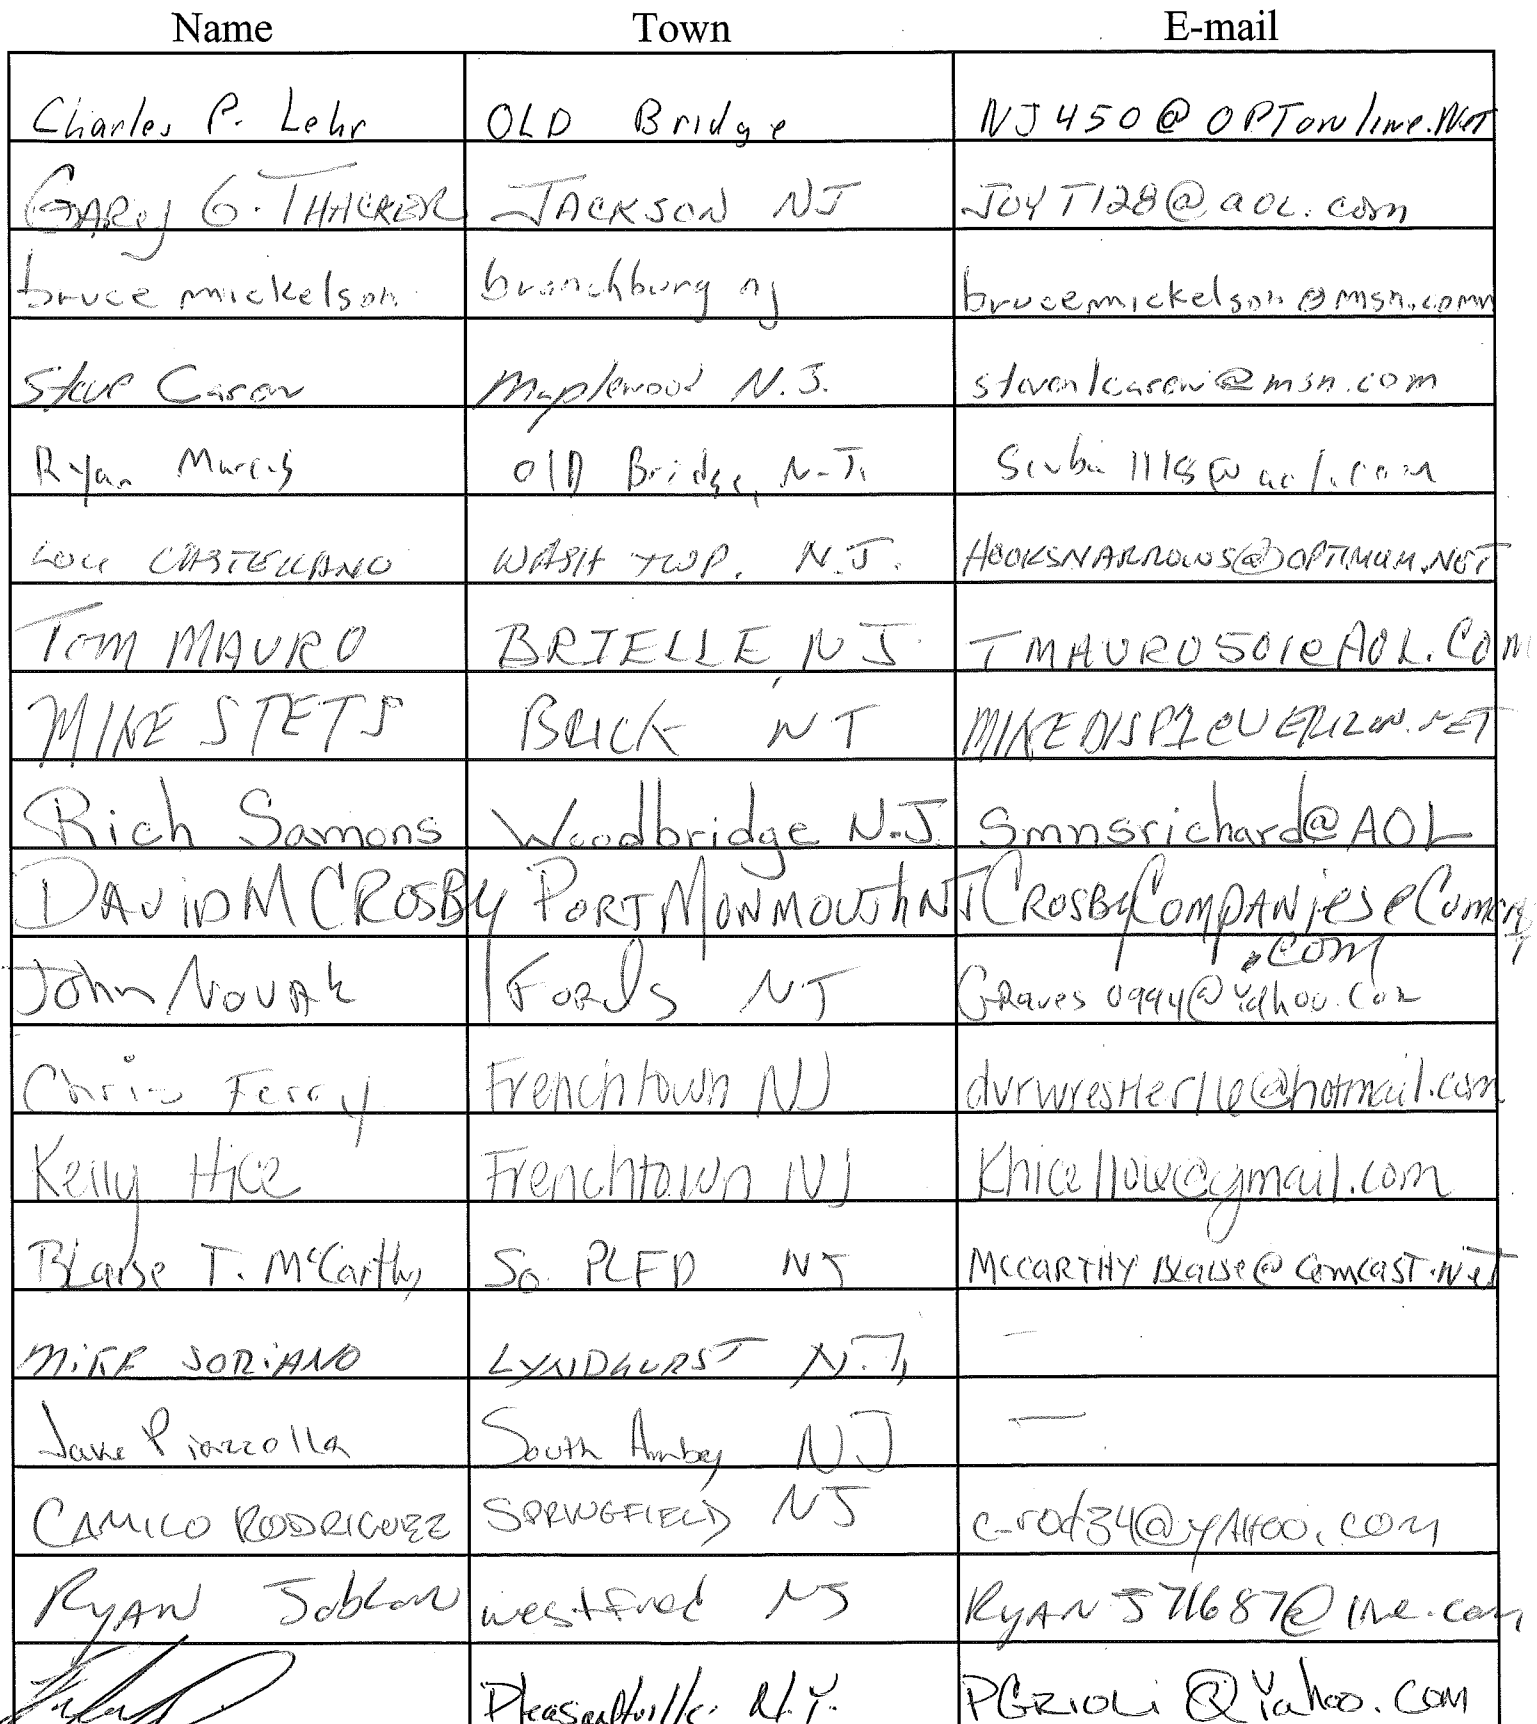 Name Town E-mail
Charles P. Lehr OLD Bridge NJ450@OPTonline.Net
GARy G. THACKER JACKSON NJ JOYT128@aol.com
bruce mickelson branchburg nj brucemickelson@msn.comm
Steve Caron Maplewood N.J. stevenlcaron@msn.com
Ryan OLD Bridge, N.J. Scuba1118@aol.com
LOU CASTELLANO WASH TWP. N.J. HOOKSNARROWS@OPTIMUM.NET
Tom MAURO BRIELLE NJ TMAURO501@AOL.COM
MIKE STETS BRICK NJ MIKEDISP1@VERIZON.NET
Rich Samons Woodbridge N.J. Smnsrichard@AOL
DAViD M CROSBY PORT MONMOUTh NJ CROSByCOMPANieS@Comcast
.com
John NOVAk Fords NJ GRaves0994@Yahoo.Com
Chris Ferry Frenchtown NJ dvrwrestler116@hotmail.com
Kelly Hice Frenchtown NJ
BLaise T. McCarthy So. PLFD NJ MCCARTHYBLaise@Comcast.NeT
MiKE SORiANO LYNDHURST N.J. —
Jake Piazzolla South Amboy NJ —
CAMILO RODRIGUEZ SPRINGFIELD NJ c-rod34@yAHOO.COM
RyAN Jablon westfield NJ RyANJ71687@live.com
Pleasantville N.Y. PGRIOLi@Yahoo.COM